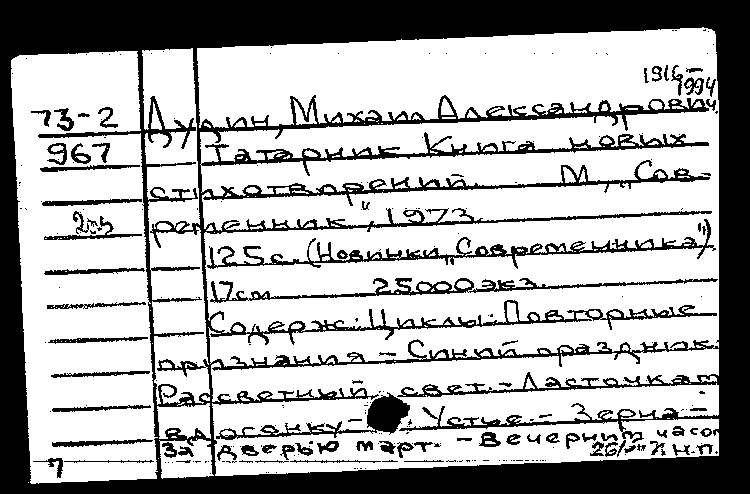 1916-
1994
73-2 Дудин, Михаил Александрович.
967 Татарник. Книга новых
стихотворений. М., „Сов-
2экз ременник", 1973.
125с. (Новинки „Современника")
17см 25000экз.
Содерж.: Циклы: Повторные
признания - Синий праздник.
Рассветный свет. - Ласточкам
вдогонку - Устье. - Зерна -
За дверью март. - Вечерним часом
7 Н.П.